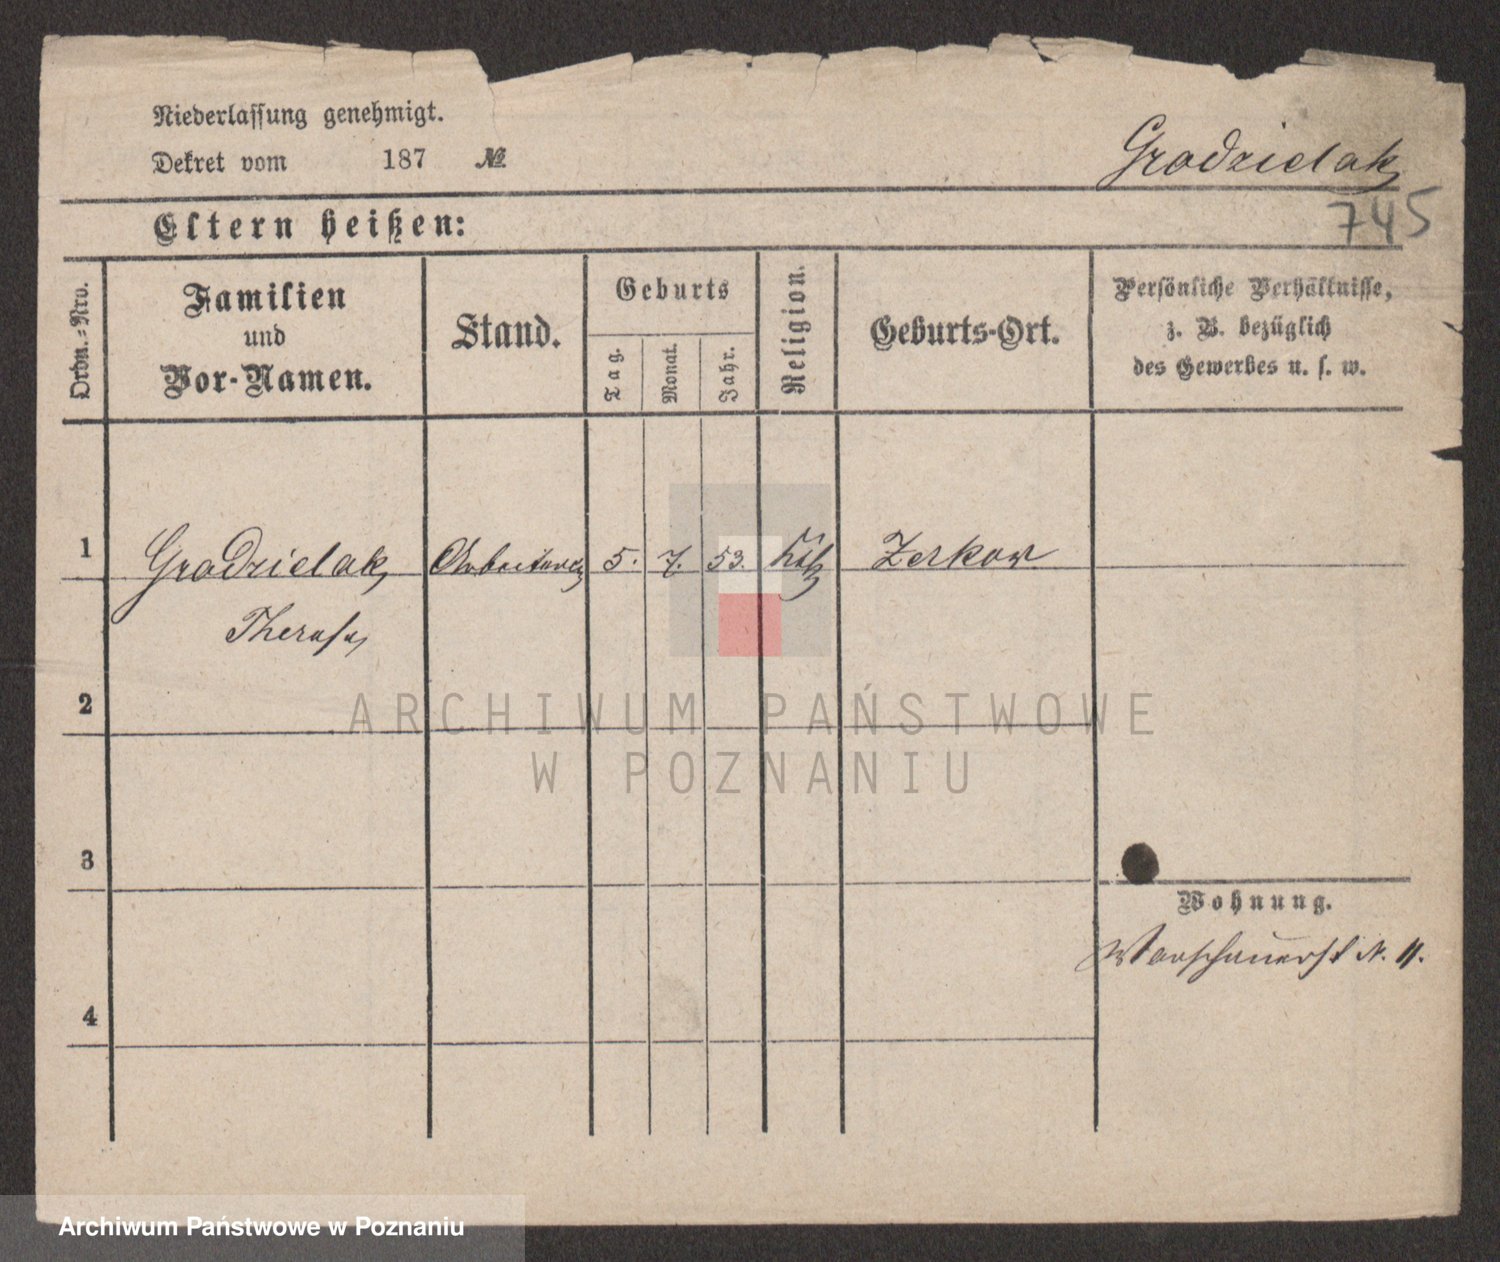 Niederlassung genehmigt.
Dekret vom 187 №
Grodzielak
745
Eltern heißen:
Ordn.-Nro.
Familien
und
Vor-Namen.
Stand.
Geburts
Tag.
Monat.
Jahr.
Religion.
Geburts-Ort.
Persönliche Verhältnisse,
z. B. bezüglich
des Gewerbes u. s. w.
1 Grodzielak Arbeiterin 5. 7. 53. kth Zerkow
Theresia
2
3
4
Wohnung.
Warschauerst N. 11.
ARCHIWUM PAŃSTWOWE
W POZNANIU
Archiwum Państwowe w Poznaniu